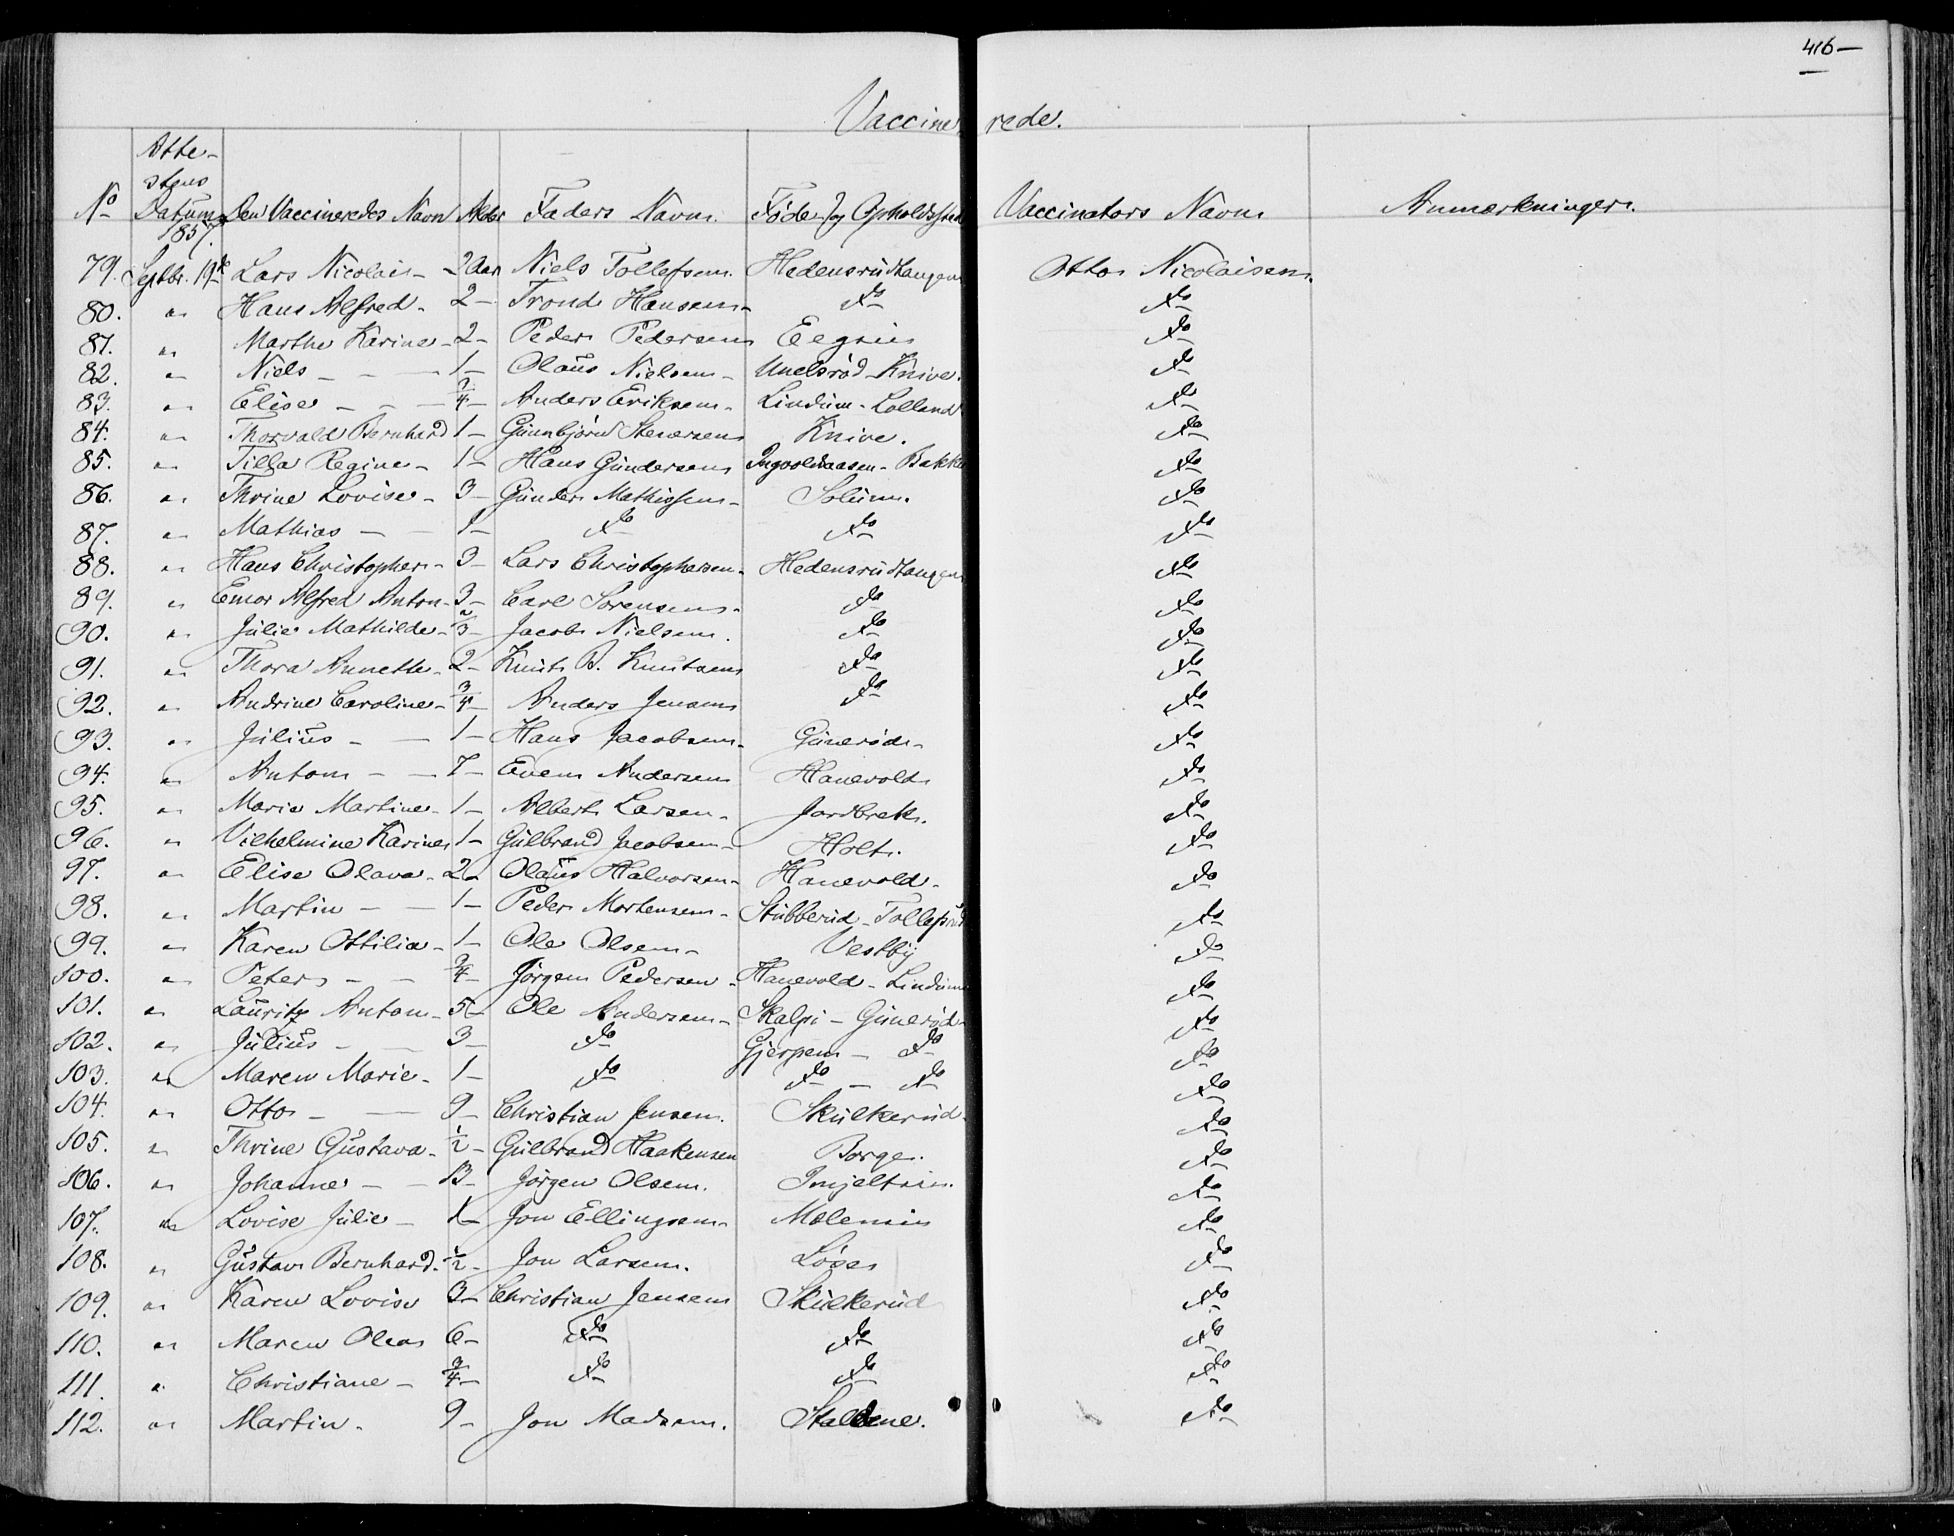 416 —
Vaccinerede.
No Attestens Datum Den Vaccineredes Navn Alder Faders Navn Føde- og Opholdssted Vaccinators Navn Anmærkninger.
1857.
79. Septbr. 19de Lars Nicolai - 2 Aar Niels Tollefsen. Hedensrudtangen Otto Nicolaisen.
80. " Hans Alfred - 2 - Trond Hansen - do do
81. " Marthe Karine - 2 - Peder Pedersen do
82. " Niels - - - 1 - Olaus Nielsen - Unelsrød - Knive. do
83. " Elise - - - 3/4 - Anders Eriksen - Lindum - Lolland do
84. " Thorvald Bernhard 1 - Gunbjørn Knive. do
85. " Tilla Regine - 1 - Hans Gundersen Ingvoldsaasen - Bakke do
86. " Thrine Lovise - 3 - Gunder Mathissen - Solum. do
87. " Mathias - - 1 - do do do
88. " Hans Christopher - 3 - Lars Christophersen - Hedensrudtangen do
89. " Alfred Anton - 3 - Carl Sørensen - do do
90. " Julie Mathilde - 2/3 - Jacob Nielsen. do do
91. " Thora Annette - 2 - Knut B. Knutsen do do
92. " Andrine Caroline - 3/4 - Anders Jensen do do
93. " Julius - - 1 - Hans Jacobsen - Gunerød - do
94. " Anton - - 7 - Even Andersen Hanevold do
95. " Marie Martine - 1 - Albert Larsen - Jordbrek. do
96. " Vilhelmine Karine 1 - Gulbrand Jacobsen - Holt. do
97. " Elise Olava - 2 - Olaus Halvorsen - Hanevold - do
98. " Martin - - 1 - Peder Mortensen - Stubberud - Tollefsrud do
99. " Karen Ottilia - 1 - Ole Olsen - Vestby do
100. " Peter - - 3/4 - Jørgen Pedersen - Hanevold - Lindum do
101. " Lauritz Anton - 5 - Ole Andersen - Skalpi - Gunerød - do
102. " Julius - - 3 - do Gjerpen - do do
103. " Maren Marie - 1 - do do - do do
104. " Otto - - 9 - Christian Jensen. Skulkerud - do
105. " Thrine Gustava - 1/2 - Gulbrand Haakensen Borge. do
106. " Johanne - - 13 - Jörgen Olsen. do
107. " Lovise Julie - 1 - Jon Ellingsen - do
108. " Gustav Bernhard - 1/2 - Jon Larsen. do
109. " Karen Lovise 3 - Christian Jensen Skulkerud do
110. " Maren Olea 6 - do do do
111. " Christiane - 3/4 - do do do
112. " Martin - 9 - Jon Madsen. Staldene. do